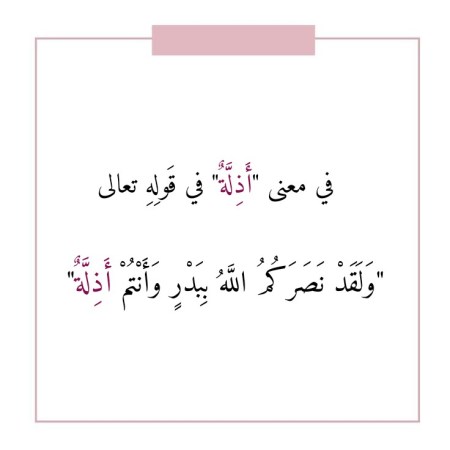 في معنى "أَذِلَّةٌ" في قَولِهِ تعالى
"وَلَقَدْ نَصَرَكُمُ اللَّهُ بِبَدْرٍ وَأَنْتُمْ أَذِلَّةٌ"